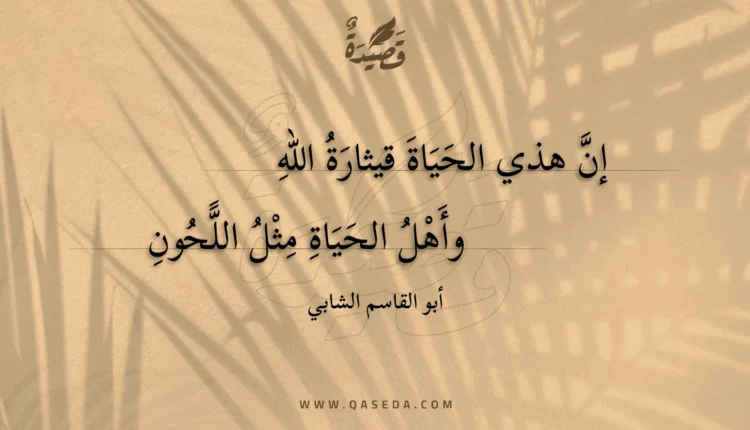 قَصِيْدَةٌ
إنَّ هذي الحَيَاةَ قيثارَةُ اللهِ
وأَهْلُ الحَيَاةِ مِثْلُ اللُّحُونِ
أبو القاسم الشابي
WWW.QASEDA.COM